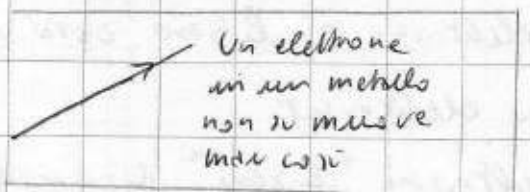 Un elettrone
in un metallo
non si muove
mai così